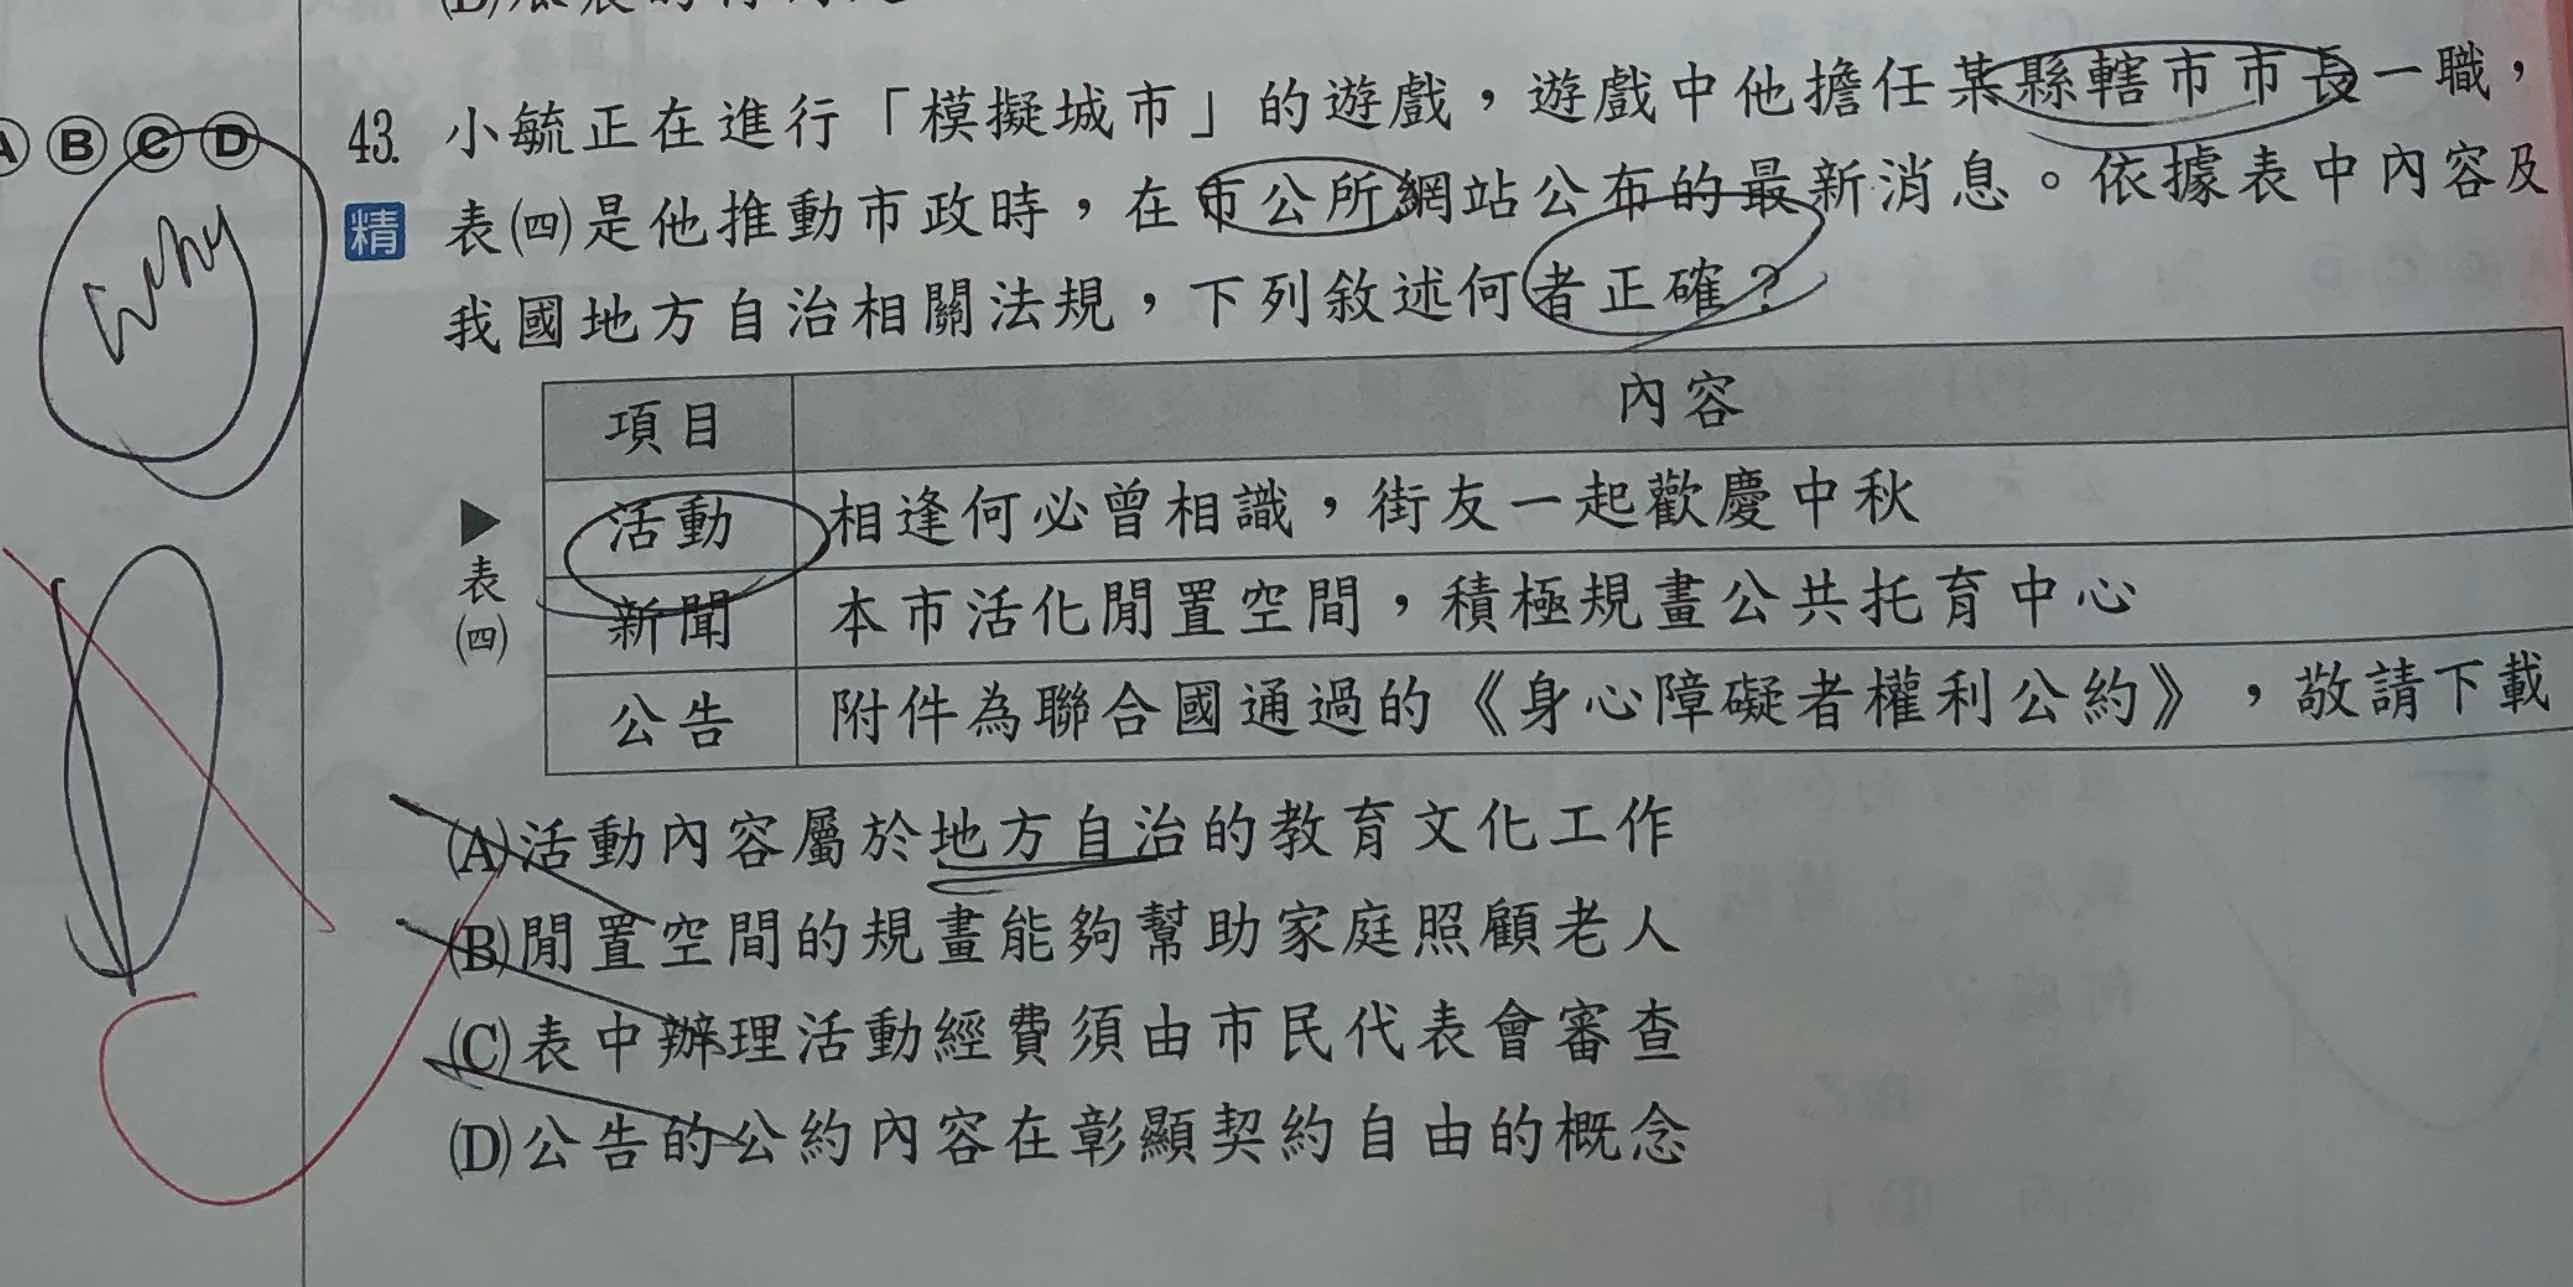 Ⓐ Ⓑ Ⓒ Ⓓ
Why
43. 小毓正在進行「模擬城市」的遊戲，遊戲中他擔任某縣轄市市長一職，
精 表㈣是他推動市政時，在市公所網站公布的最新消息。依據表中內容及
我國地方自治相關法規，下列敘述何者正確？
項目 內容
活動 相逢何必曾相識，街友一起歡慶中秋
新聞 本市活化閒置空間，積極規畫公共托育中心
公告 附件為聯合國通過的《身心障礙者權利公約》，敬請下載
▶表㈣
(A)活動內容屬於地方自治的教育文化工作
(B)閒置空間的規畫能夠幫助家庭照顧老人
(C)表中辦理活動經費須由市民代表會審查
(D)公告的公約內容在彰顯契約自由的概念